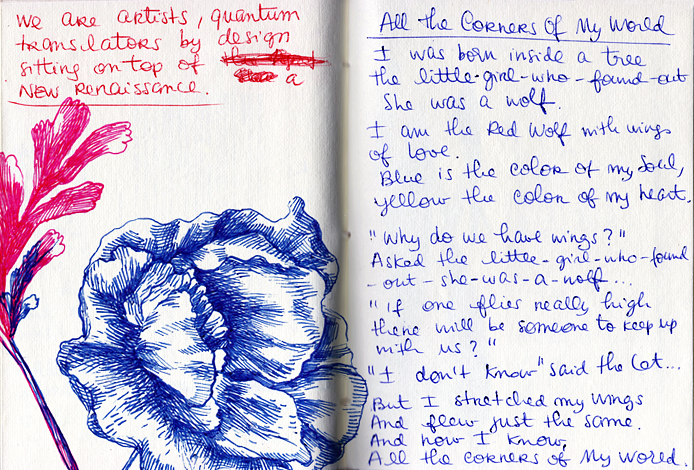 We are artists, quantum
translators by design
sitting on top of
a
New Renaissance.
All the Corners Of My World
I was born inside a tree
the little-girl-who-found-out
She was a wolf.
I am the Red Wolf with wings
of Love.
Blue is the color of my Soul,
yellow the color of my heart.
"Why do we have wings?"
Asked the little-girl-who-found
-out-she-was-a-wolf...
"If one flies really high
there will be someone to keep up
with us?"
"I don't know" said the Cat...
But I stretched my wings
And flew just the same.
And now I know,
All the corners of My World.